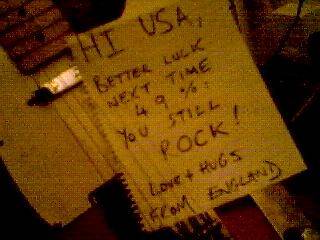 HI USA,
BETTER LUCK
NEXT TIME
49%:
YOU STILL
ROCK!
LOVE + HUGS
FROM ENGLAND